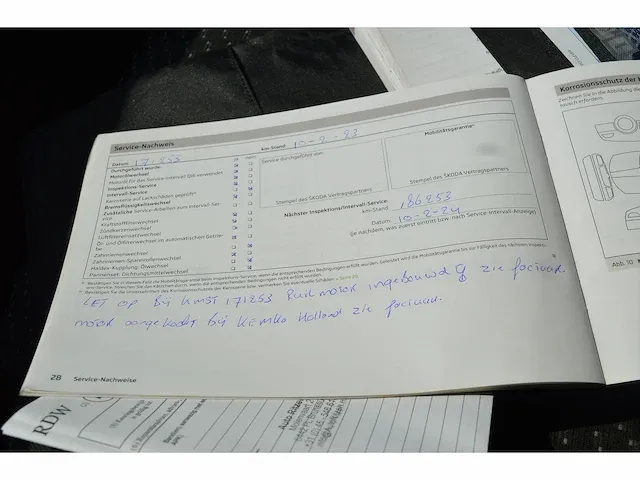 Service-Nachweis
Datum: 171253
km-Stand: 10-2-23
ja nein
Durchgeführt wurde:
Motorölwechsel
Motoröl für das Service-Intervall QI6 verwendet
Inspektions-Service
Intervall-Service
Karosserie auf Lackschäden geprüft
Bremsflüssigkeitswechsel
Zusätzliche Service-Arbeiten zum Intervall-Service
Kraftstofffilterwechsel
Zündkerzenwechsel
Luftfiltereinsatzwechsel
Öl- und Ölfilterwechsel im automatischen Getriebe
Zahnriemenwechsel
Zahnriemen-Spannrollenwechsel
Haldex-Kupplung: Ölwechsel
Pannenset: Dichtungsmittelwechsel
Service durchgeführt von:
Stempel des ŠKODA Vertragspartners
Mobilitätsgarantie
Stempel des ŠKODA Vertragspartners
Nächster Inspektions/Intervall-Service:
km-Stand: 186253
Datum: 10-2-24
(je nachdem, was zuerst eintritt bzw. nach Service-Intervall-Anzeige)
LET OP Bij kmst 171253 Ruil motor ingebouwd zie factuur.
motor aangekocht bij KEMKO Holland zie factuur.
28 Service-Nachweise
Korrosionsschutz der
Zeichnen Sie in die Abbildung die
Abb. 10
RDW
Auto Ritzen